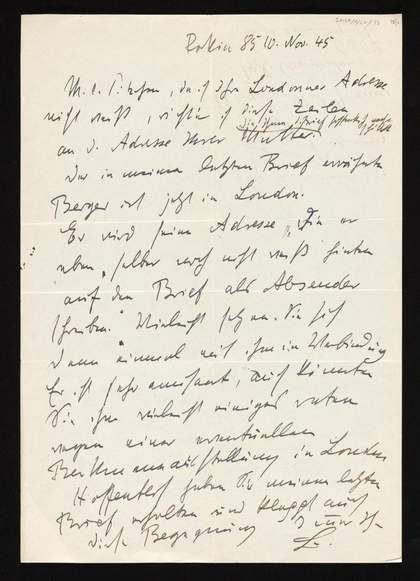 Rokin 85 10. Nov. 45
da ich Ihre Londoner Adresse
nicht weiß, richte ich diese Zeilen
an d. Adresse Ihrer Mutter.
Der in meinem letzten Brief erwähnte
Berger ist jetzt in London.
Er wird seine Adresse, die er
eben selber noch nicht weiß hinten
auf den Brief als Absender
schreiben. Vielleicht setzen Sie sich
dann einmal mit ihm in Verbindung
Er ist sehr amüsant, auch könnten
Sie ihm vielleicht einiges raten
wegen einer eventuellen
Beckmannausstellung in London
Hoffentlich haben Sie meinen letzten
Brief erhalten und klappt auch
diese Begegnung